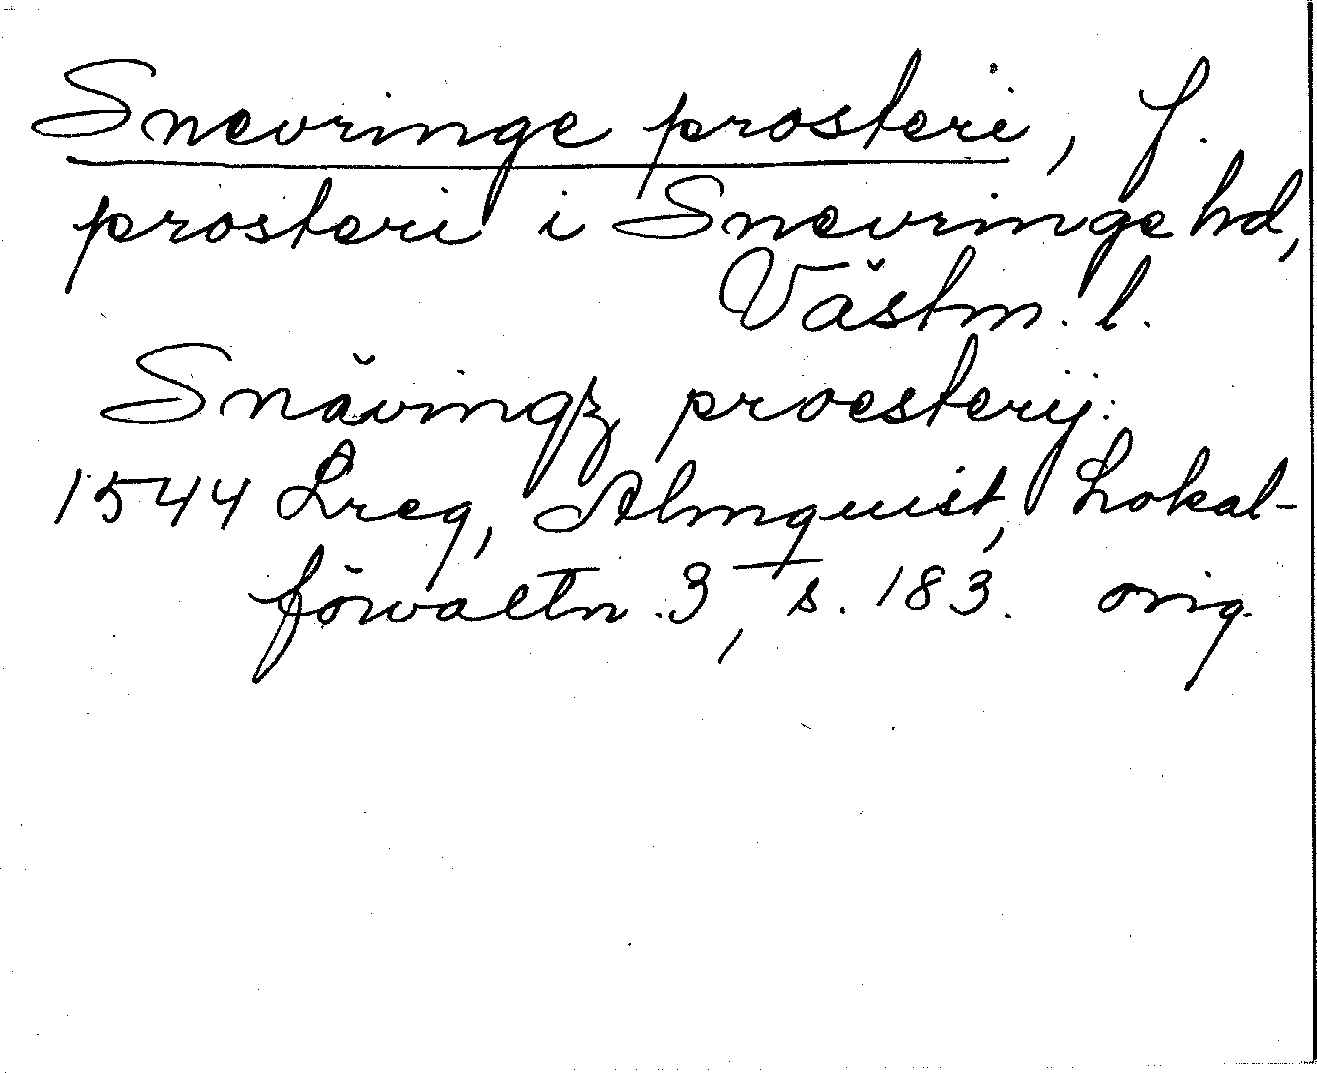 Snevringe prosteri, f.
prosteri i Snevringe hd,
Västm. l.
Snävingz proestery:
1544 Lreg, Almquist, Lokal-
förvaltn. 3, s. 183. orig.